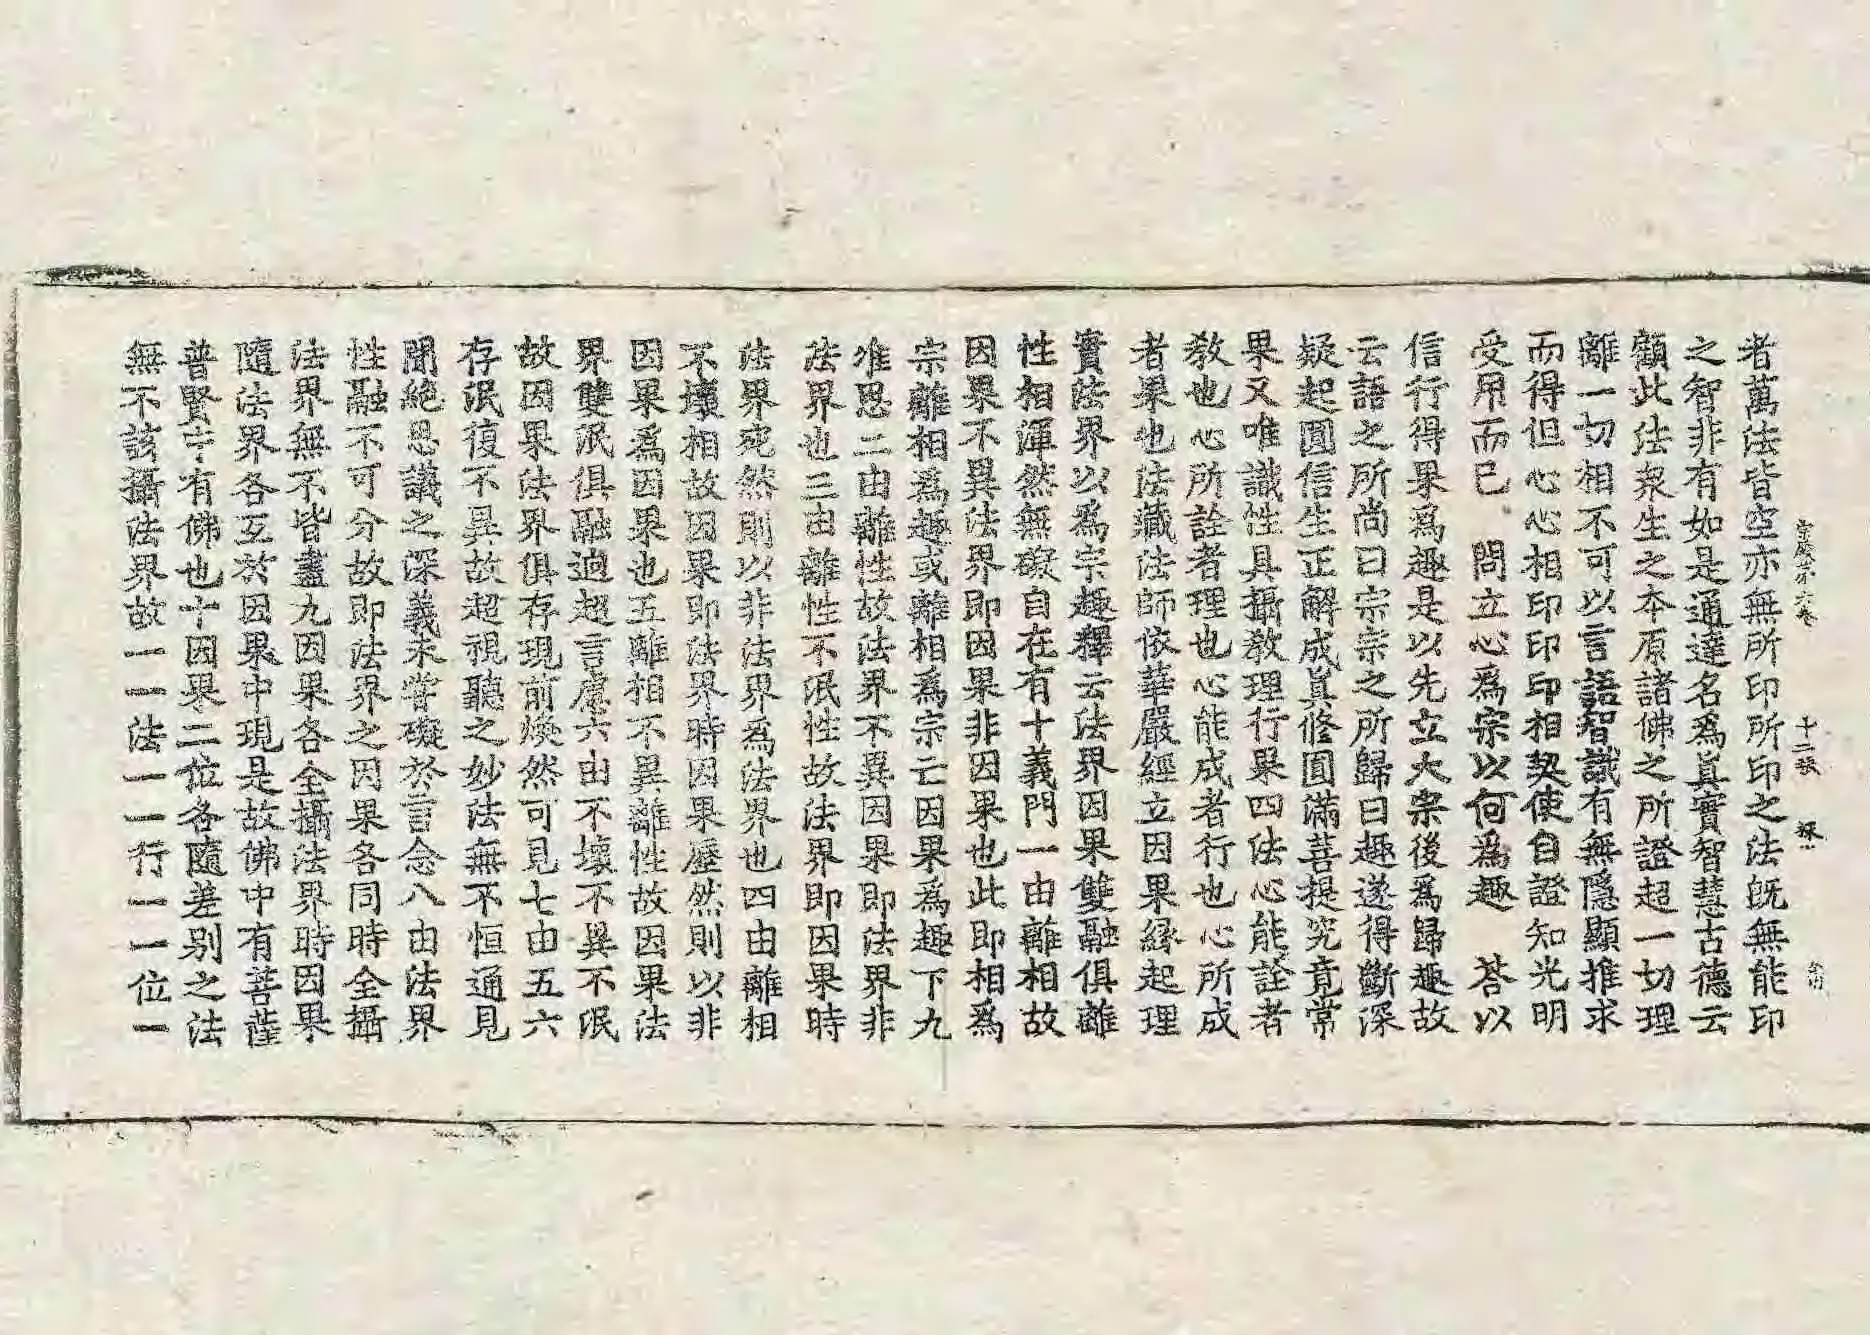 宗鏡 第六卷 十二張
者萬法皆空亦無所印所印之法旣無能印
之智非有如是通達名爲眞實智慧古德云
顧此法衆生之本原諸佛之所證超一切理
離一切相不可以言語智識有無隱顯推求
而得但心心相印印印相契使自證知光明
受用而已 問立心爲宗以何爲趣 荅以
信行得果爲趣是以先立大宗後爲歸趣故
云語之所尚曰宗宗之所歸曰趣遂得斷深
疑起圓信生正解成眞修圓滿菩提究竟常
果又唯識性具攝教理行果四法心能詮者
教也心所詮者理也心能成者行也心所成
者果也法藏法師依華嚴經立因果緣起理
實法界以爲宗趣釋云法界因果雙融俱離
性相渾然無礙自在有十義門一由離相故
因果不異法界即因果非因果也此即相爲
宗離相爲趣或離相爲宗亡因果爲趣下九
准思二由離性故法界不異因果即法界非
法界也三由離性不泯性故法界即因果時
法界宛然則以非法界爲法界也四由離相
不壞相故因果即法界時因果歷然則以非
因果爲因果也五離相不異離性故因果法
界雙泯俱融逈超言慮六由不壞不異不泯
故因果法界俱存現前煥然可見七由五六
存泯復不異故超視聽之妙法無不恒通見
聞絶思議之深義未嘗礙於言念八由法界
性融不可分故即法界之因果各同時全攝
法界無不皆盡九因果各全攝法界時因果
隨法界各互於因果中現是故佛中有菩薩
普賢中有佛也十因果二位各隨差别之法
無不該攝法界故一一法一一行一一位一